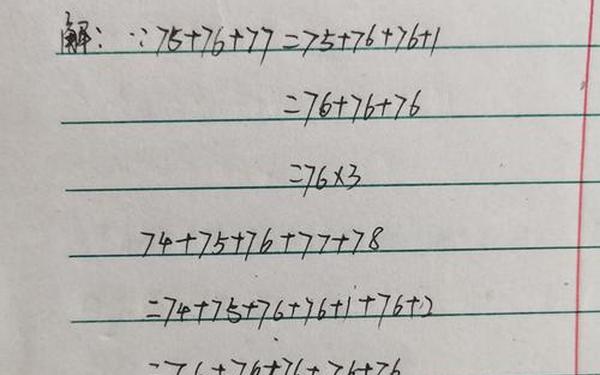 解：∵75+76+77=75+76+76+1
=76+76+76
=76×3
74+75+76+77+78
=74+75+76+76+1+76+2
=76+76+76+76+76